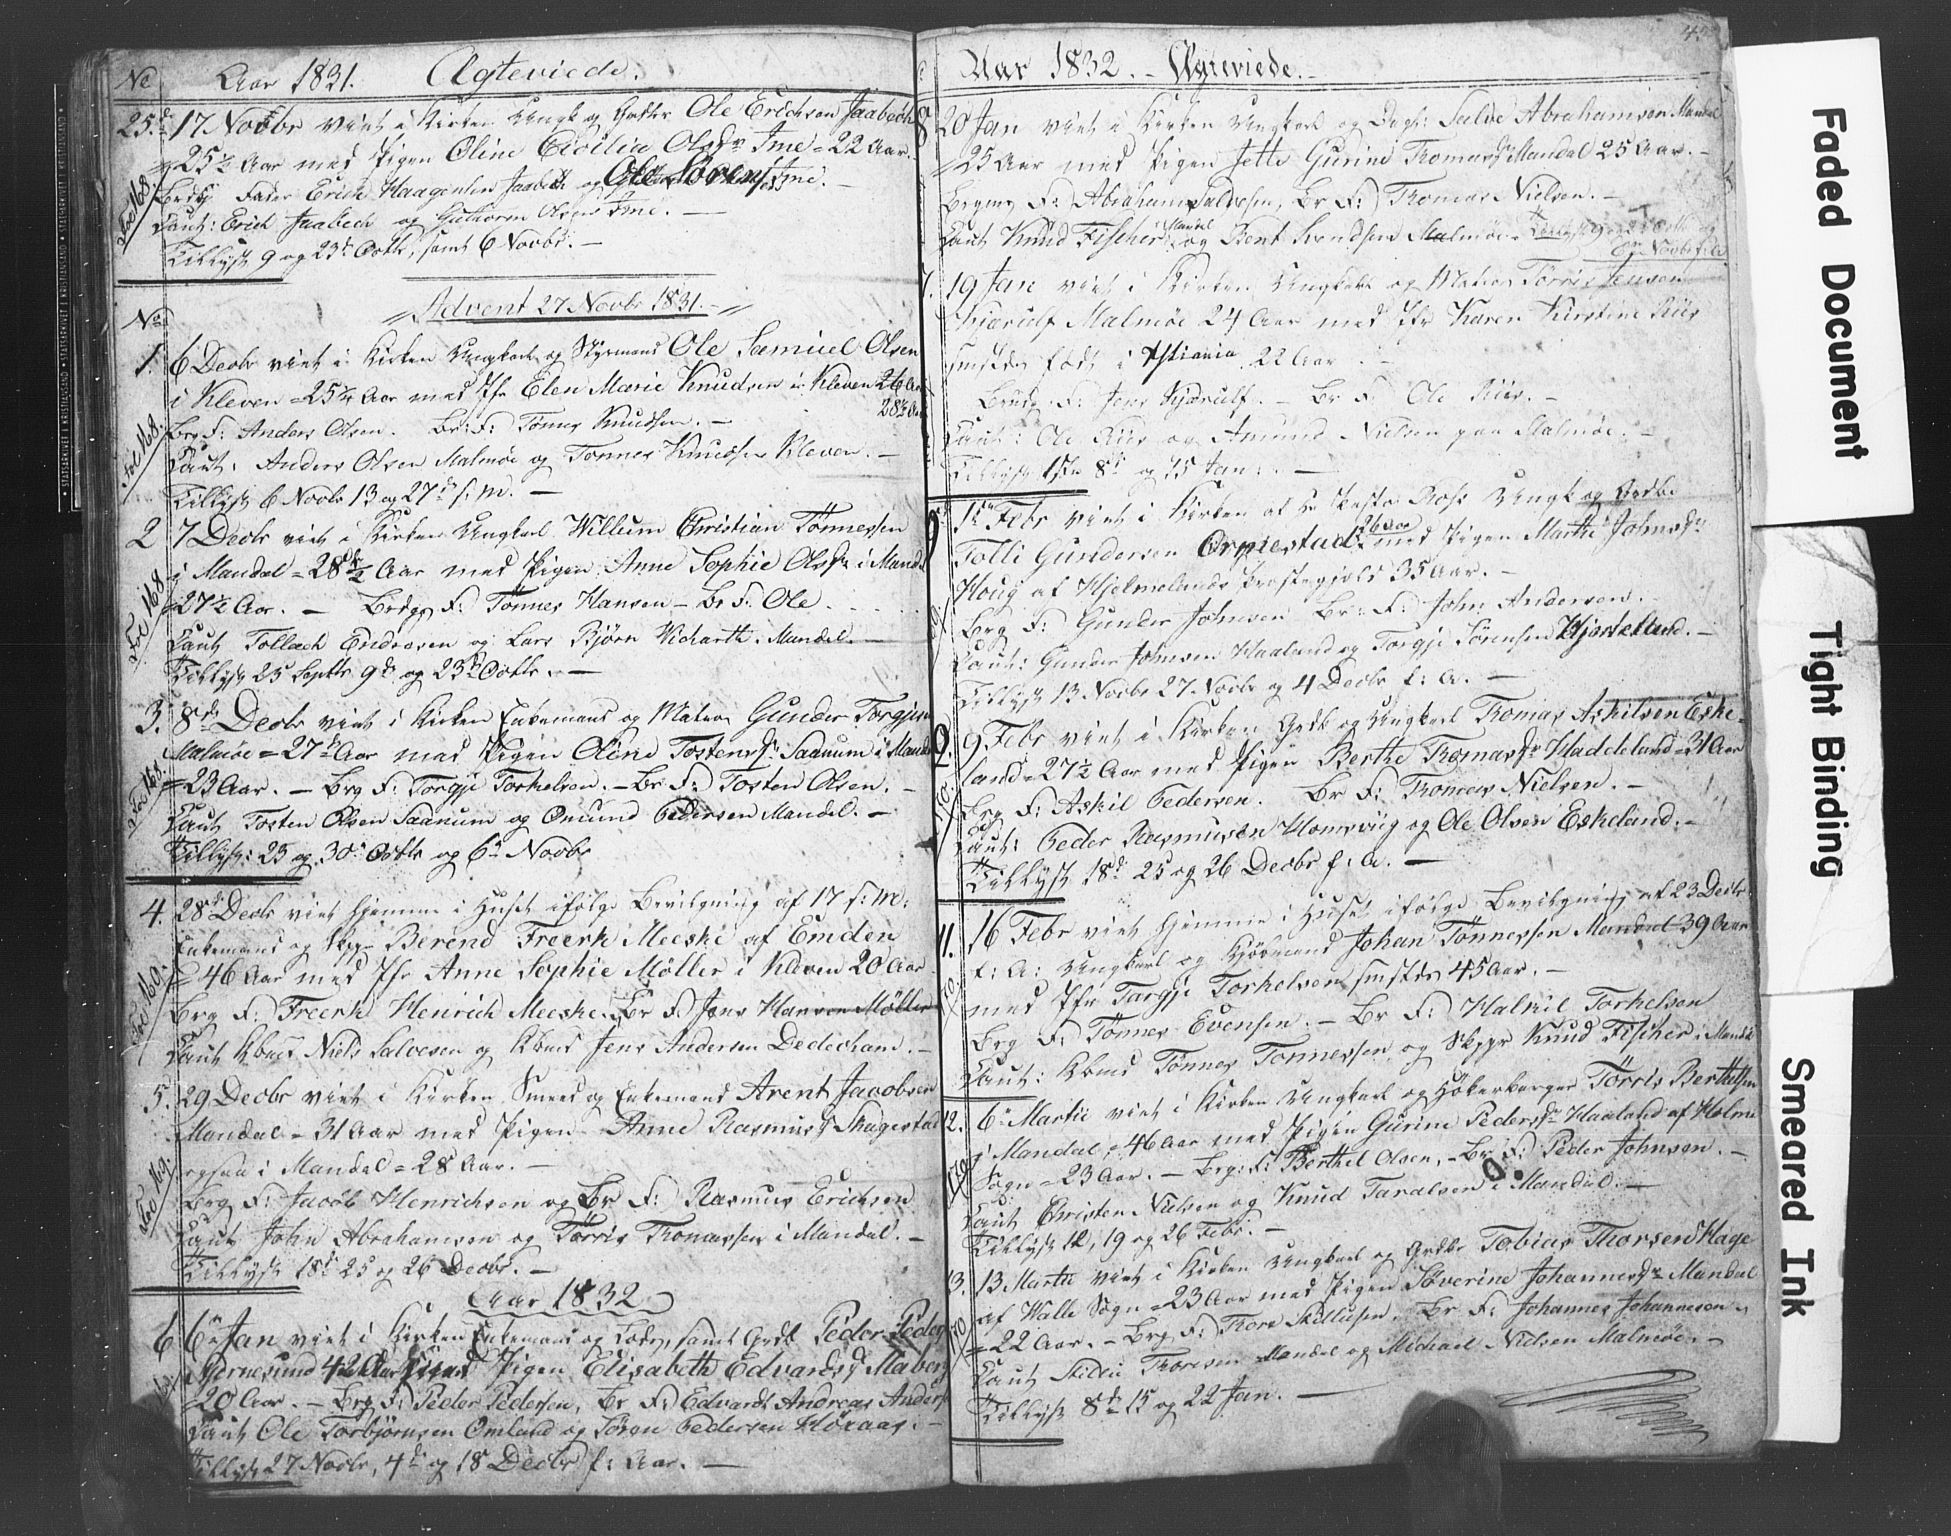 No Aar 1831. Ægteviede.
25. d 17 Novbr viet i Kirken Ungk og Ole Erichsen Jaabech
25½ Aar med Pigen Oline Cicilia Olsdr Ime = 22 Aar.
Fol 168.
Brdg Fader Erich Haagensen Jaabech og Ole Sörens Ime. -
Caut: Erich Jaabech og Guthorm Olsen Ime. -
Tillyst 9 og 23de Octb, samt 6 Novbr. -
Advent 27 Novbr 1831. -
No
1. 6 Decbr viet i Kirken Ungkarl og Styrmand Ole Samuel Olsen
i Kleven = 25¼ Aar med Jfr Elen Marie Knudsen i Kleven 26 Aar
28½ Aar
Fol 168.
Brg F: Anders Olsen. Br: F: Tönnes Knudsen. -
Caut: Anders Olsen Malmöe og Tönnes Knudsen Kleven. -
Tillyst 6 Novbr 13 og 27de s: M. -
2 7 Decbr viet i Kirken Ungkarl Willum Christian Tönnessen
i Mandal = 28½ Aar med Pigen Anne Sophie Olsdr i Mandal
Fol 168
= 27½ Aar. - Brdg F: Tönnes Hansen - Br F: Ole
Caut Tollach Endresen og Lars Bjørn Wicharth. Mandal. -
Tillyst 25 Septbr 9de og 23de Octbr. -
3. 8de Decbr viet i Kirken Enkemand og Matros Gunder Torgjusen
Malmöe = 27 Aar med Pigen Oline Tostensdr Saanum i Mandal
Fol 168.
= 23 Aar. - Brg F: Torgje Torkelsen. - Br F: Tosten Olsen. -
Caut Tosten Olsen Saanum og Omund Pedersen Mandal. -
Tillyst: 23 og 30 Octbr og 6te Novbr
4. 28de Decbr viet hjemme i Huset ifølge Bevilgning af 17 s: M:
Enkemand og Skp Berend Freerk Meeske af Emden
Fol 169.
= 46 Aar med Jfr Anne Sophie Møller i Kleven 20 Aar
Brg F: Freerk Henrich Meeske. Br F: Jens Hansen Møller
Caut Niels Salvesen og Kbmd Jens Andersen Dedecham. -
5. 29 Decbr viet i Kirken Smeed og Enkemand Arent Jacobsen
Mandal = 31 Aar med Pigen Anne Rasmusd Skagestad
Fol 169.
ogsaa i Mandal = 28 Aar. -
Brg F: Jacob Henrichsen og Br F: Rasmus Erichsen
Caut John Abrahamsen og Törris Thomassen i Mandal. -
Tillyst 18de 25 og 26 Decbr. -
Aar 1832
6 6te Jan viet i Kirken Enkemand og Lods, samt Grdb Peder Peders
i Gjernesund 42 Aar med Pigen Elisabeth Edvardsdr Maberg
20 Aar. - Brg F: Peder Pedersen, Br F: Edvardt Andreas Anders
Caut Ole Torbjørnsen Omland og Søren Pedersen Höaas. -
Tillyst 27 Novbr, 4de og 18 Decbr f: Aar. -
Aar 1832. - Ægteviede. -
20 Jan viet i Kirken Ungkarl og Salve Abrahamsen Mandal
= 25 Aar med Pigen Jette Gurine Thomasdr Mandal 25 Aar. -
Brgms F: Abraham Salvesen, Br F: Thomas Nielsen. -
Caut Knud Fischer Mandal og Bent Svendsen Malmöe.
7. 19 Jan viet i Kirken Ungkarl og Matros Törris Jensen
Kiærulf Malmöe 24 Aar med Jfr Karen Kirstine Riis
smstds født i Xstiania 22 Aar
Brudg: F: Jens Kjærulf. - Br F: Ole Riis. -
Caut: Ole Riis og Amund Nielsen paa Malmöe. -
Tillyst 1ste 8de og 15 Jan: -
1ste Febr viet i Kirken af Hr Pastor Ungk og Grdbr
Tolli Gundersen Orpiestad 26 Aar med Pigen Marthe Johnsdr
Houg af Hjelmelands Præstegjeld 35 Aar. -
Brg F: Gunder Johnsen Br: F: John Andersen.
Caut: Gunder Johnsen Haaland og Torgje Sörensen Hjorteland. -
Tillyst 13 Novbr 27 Novbr og 4 Decbr f: A. -
9 Febr viet i Kirken Grdb og Ungkarl Thomas Askilsen Eske-
land = 27½ Aar med Pigen Berthe Thomasdr Haddeland = 31 Aar
Brg F: Askil Pedersen. Br F: Thomas Nielsen. -
Caut: Peder Rasmusen Homsviig og Ole Olsen Eskeland. -
Tillyst 18de 25 og 26 Decbr f: A. -
11. 16 Febr viet hjemme i Huset ifølge Bevilgning af 23 Decbr
f: A: Ungkarl og Kjöbmand Johan Tönnessen Mandal 39 Aar
med Jfr Targje Torkelsen smstds 45 Aar. -
Brg F: Tönnes Evensen. - Br F: Halkil Torkelsen
Caut: Kbmd Tönnes Tönnessen og Skppr Knud Fischer i Mandal
12. 6te Martii viet i Kirken Ungkarl og Høkerborger Törris Berthelsen
i Mandal, = 46 Aar med Pigen Gurine Pedersdr Haaland af Holme
170
Sogn = 23 Aar. - Brg: F: Berthel Olsen, - Br F: Peder Johnsen. -
Caut Christen Nielsen og Knud Taraldsen i Mandal. -
Tillyst 12, 19 og 26 Febr. -
13. 13 Marti viet i Kirken Ungkarl og Grdbr Tobias Thorsen Hage
af Walle Sogn = 23 Aar med Pigen Severine Johannesdr Mandal
= 22 Aar. - Brg F: Thore Skillusen. Br F: Johannes Johannesen
Caut Thoresen Mandal og Michael Nielsen Malmöe. -
Tillyst 8de 15 og 22 Jan. -
Faded Document
Tight Binding
Smeared Ink